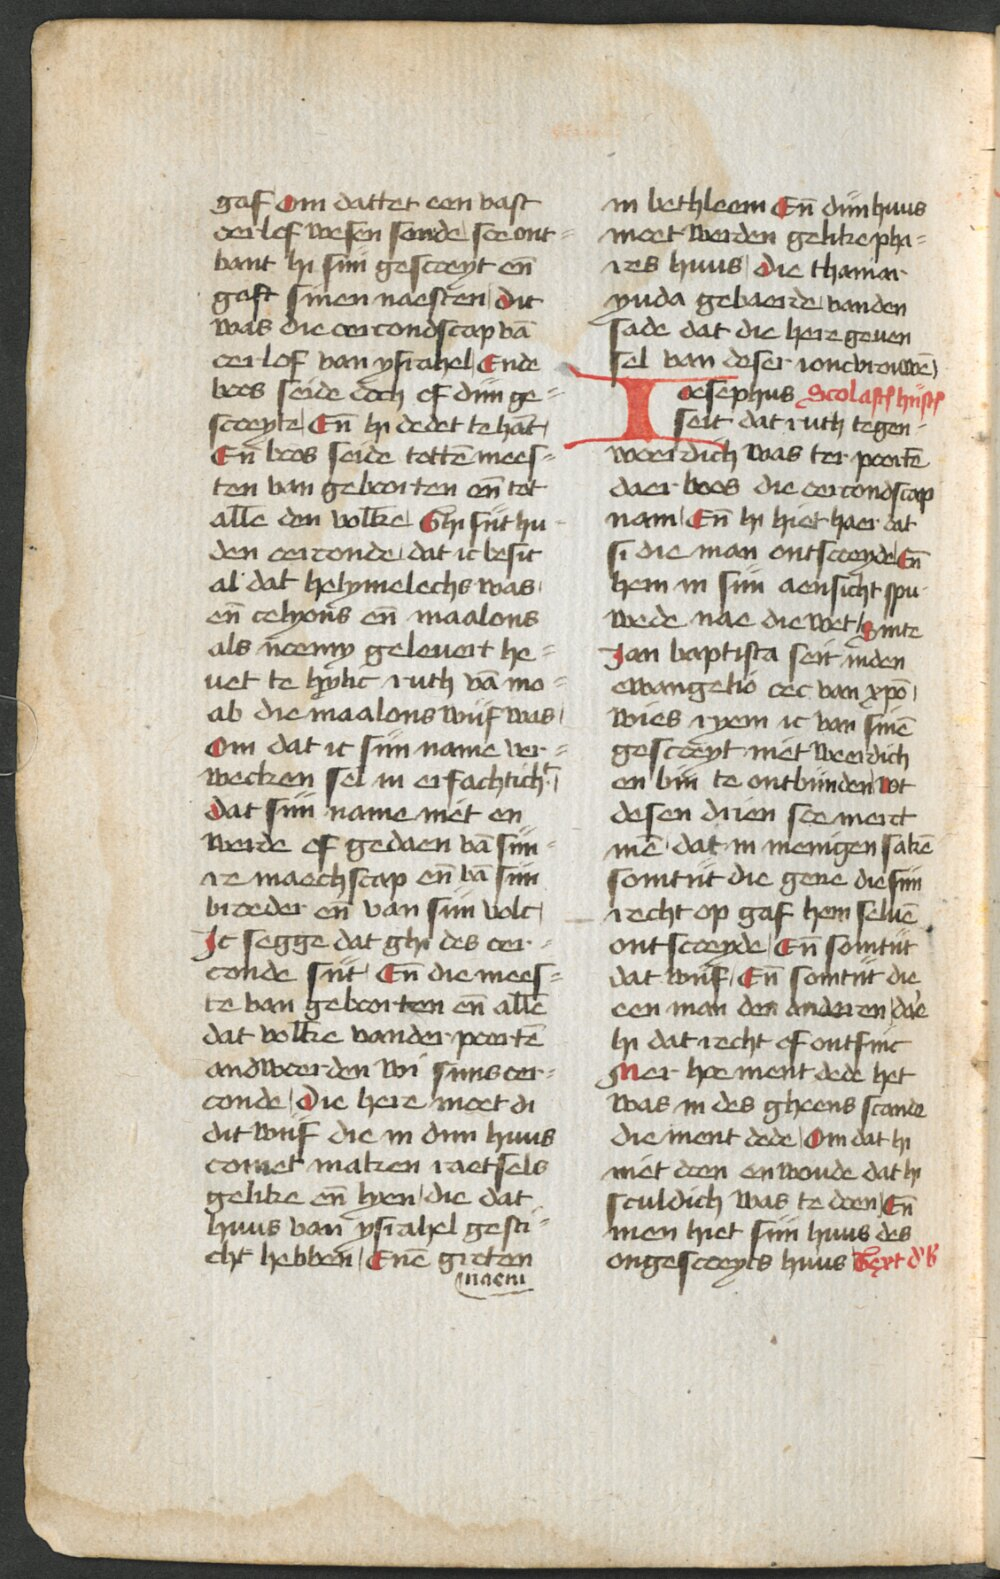 gaf Om dattet een vast
oerlof wesen soude soe ont=
bant hi sijn gescoeyt en̄
gaft sinen naesten dit
was die oercondscap vā
oerlof van ysrahel Ende
boos seide doch of dijn ge=
scoeyte En̄ hi dedet te hāt
En̄ boos seide tottē mees=
ten van geboorten en̄ tot
alle den volke Ghi sijt hu-
den oerconde dat ic besit
al dat helymelechs was
en̄ celyons en̄ maalons
als noemy gelevert he=
vet te hylic ruth vā mo=
ab die maalons wijf was
Om dat ic sijn name ver=
wecken sel in erfachtich
dat sijn name niet en
werde of gedaen vā sijn-
re maechscap en̄ vā sijn
broeder en̄ van sijn volc
Ic segge dat ghi des oer-
conde sijt En̄ die mees=
te van geboorten en̄ alle
dat volke vander poortē
andwoerden wi sijns oer=
conde Die here moet di
dit wijf die in dijn huus
comet maken raetsels
gelike en̄ lyen die dat
huus van ysrahel gesti=
cht hebben Enē groten
naem
in bethleem En̄ dijn huus
moet werden gelike pha=
res huus die thamar
yuda gebaerde vanden
sade dat die here geven
sel van deser ioncvrouwē
Iosephus Scolast' hijst'
seit dat ruth tegen-
woerdich was ter poortē
daer boos die oercondscap
nam En̄ hi hiet haer dat
si die man ontscoeyde En̄
hem in sijn aensicht spu-
wede nae die wet Sinte
Jan baptista seit inden
ewangelio oec van xp̄o
wies ryem ic van sinē
gescoeyt niet weerdich
en bin te ontbinden Wt
desen dijen soe merct
mē dat in menigen sakē
somtijt die gene die sijn
recht op gaf hem selvē
ontscoeyde En̄ somtijt
dat wijf En̄ somtijt die
een man den anderen dae
hi dat recht of ontfinc
Mer hoe ment dede het
was in des gheens scande
die ment dede Om dat hi
niet doen en woude dat hi
sculdich was te doen En̄
men hiet sijn huus des
ongescoeyts huus Text d' b'